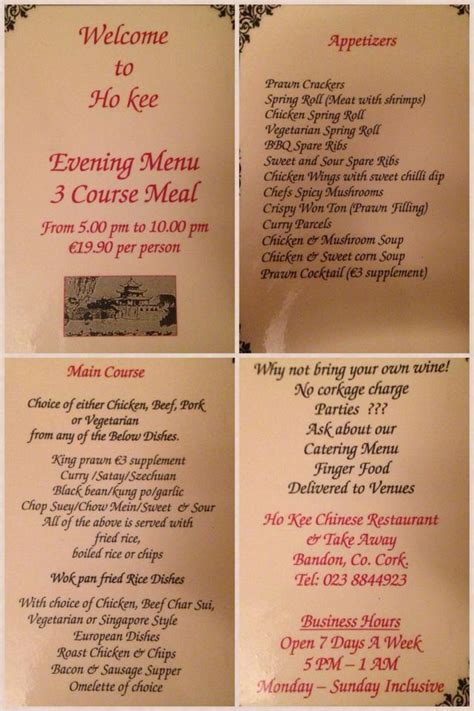 Welcome
to
Ho kee
Evening Menu
3 Course Meal
From 5.00 pm to 10.00 pm
€19.90 per person
Appetizers
Prawn Crackers
Spring Roll (Meat with shrimps)
Chicken Spring Roll
Vegetarian Spring Roll
BBQ Spare Ribs
Sweet and Sour Spare Ribs
Chicken Wings with sweet chilli dip
Chefs Spicy Mushrooms
Crispy Won Ton (Prawn Filling)
Curry Parcels
Chicken & Mushroom Soup
Chicken & Sweet corn Soup
Prawn Cocktail (€3 supplement)
Main Course
Choice of either Chicken, Beef, Pork
or Vegetarian
from any of the Below Dishes.
King prawn €3 supplement
Curry /Satay/Szechuan
Black bean/kung po/garlic
Chop Suey/Chow Mein/Sweet & Sour
All of the above is served with
fried rice,
boiled rice or chips
Wok pan fried Rice Dishes
With choice of Chicken, Beef Char Sui,
Vegetarian or Singapore Style
European Dishes
Roast Chicken & Chips
Bacon & Sausage Supper
Omelette of choice
Why not bring your own wine!
No corkage charge
Parties ???
Ask about our
Catering Menu
Finger Food
Delivered to Venues
Ho Kee Chinese Restaurant
& Take Away
Bandon, Co. Cork.
Tel: 023 8844923
Business Hours
Open 7 Days A Week
5 PM – 1 AM
Monday – Sunday Inclusive